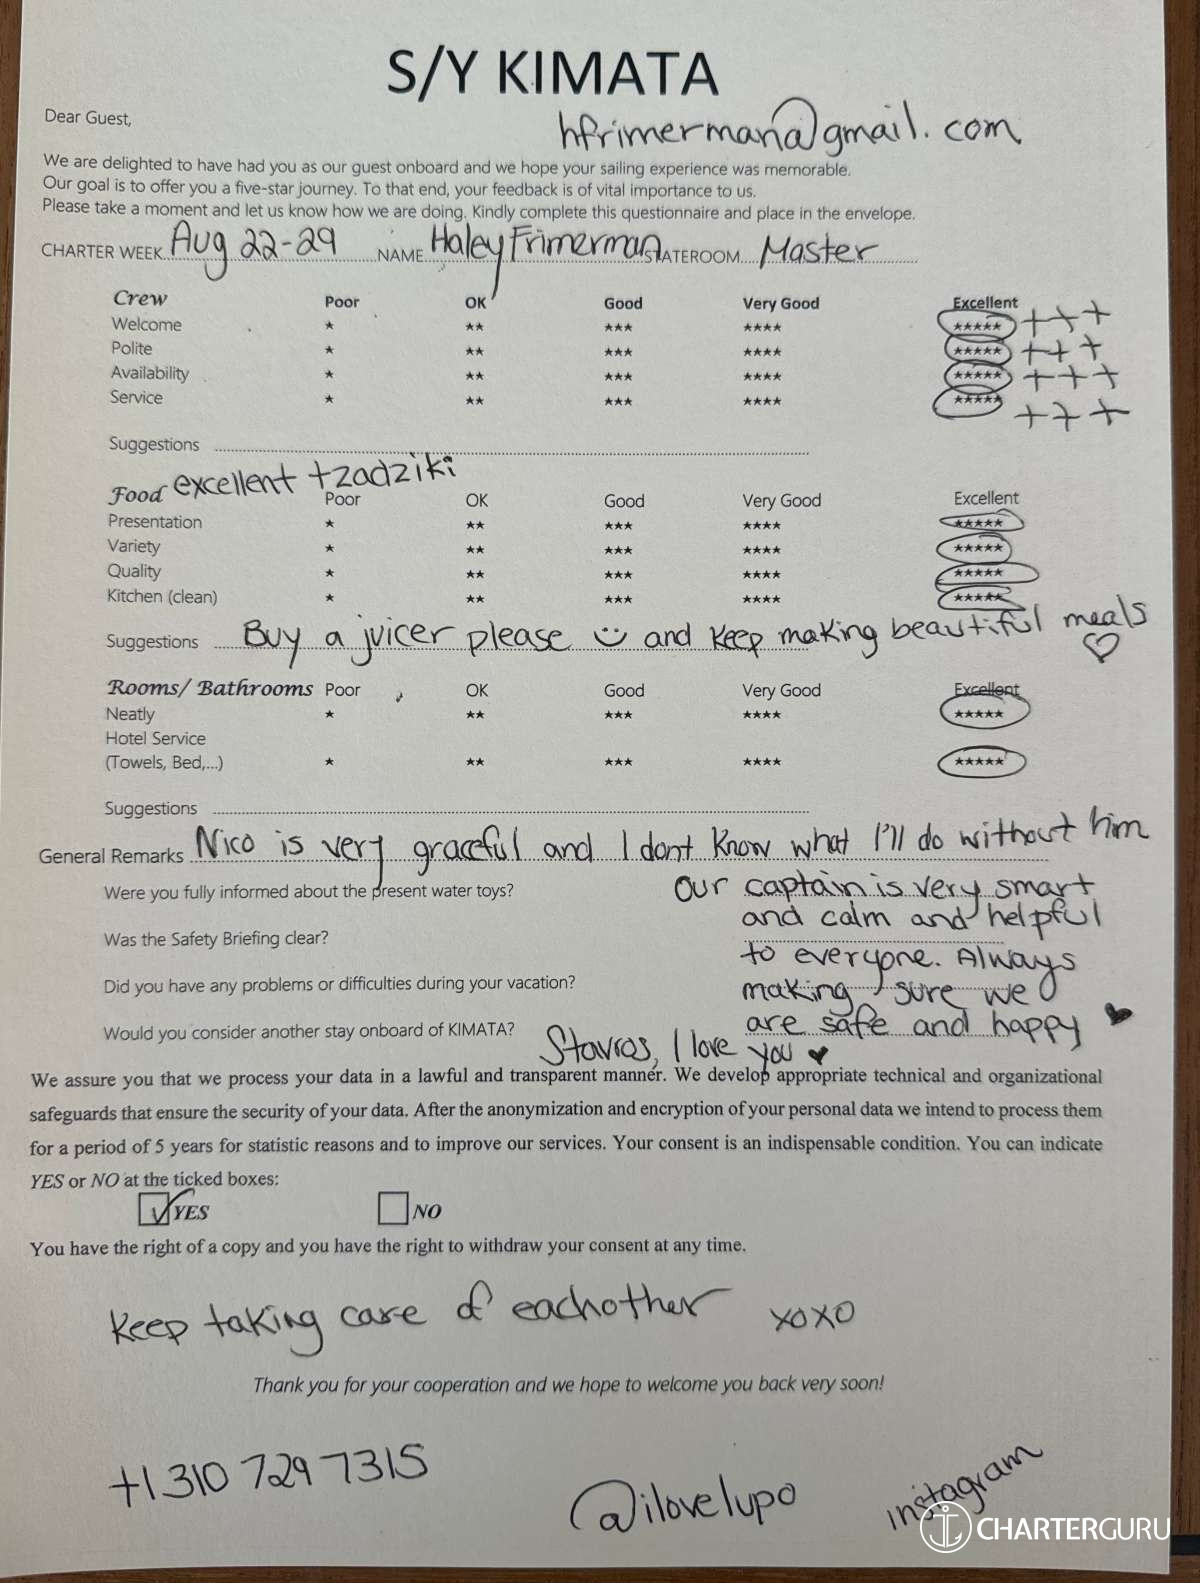 S/Y KIMATA
Dear Guest,
hfrimerman@gmail.com
We are delighted to have had you as our guest onboard and we hope your sailing experience was memorable.
Our goal is to offer you a five-star journey. To that end, your feedback is of vital importance to us.
Please take a moment and let us know how we are doing. Kindly complete this questionnaire and place in the envelope.
CHARTER WEEK Aug 22-29 NAME Haley Frimerman STATEROOM Master
Crew Poor OK Good Very Good Excellent
Welcome ★ ★★ ★★★ ★★★★ ★★★★★ +++
Polite ★ ★★ ★★★ ★★★★ ★★★★★ +++
Availability ★ ★★ ★★★ ★★★★ ★★★★★ +++
Service ★ ★★ ★★★ ★★★★ ★★★★★ +++
Suggestions
excellent tzadziki
Food Poor OK Good Very Good Excellent
Presentation ★ ★★ ★★★ ★★★★ ★★★★★
Variety ★ ★★ ★★★ ★★★★ ★★★★★
Quality ★ ★★ ★★★ ★★★★ ★★★★★
Kitchen (clean) ★ ★★ ★★★ ★★★★ ★★★★★
Suggestions Buy a juicer please ☺ and keep making beautiful meals ♡
Rooms/ Bathrooms Poor OK Good Very Good Excellent
Neatly ★ ★★ ★★★ ★★★★ ★★★★★
Hotel Service
(Towels, Bed,...) ★ ★★ ★★★ ★★★★ ★★★★★
Suggestions
General Remarks Nico is very graceful and I dont know what I'll do without him
Were you fully informed about the present water toys?
Our captain is very smart
and calm and helpful
Was the Safety Briefing clear?
to everyone. Always
Did you have any problems or difficulties during your vacation?
making sure we
are safe and happy ♥
Would you consider another stay onboard of KIMATA?
Stavros, I love you ♥
We assure you that we process your data in a lawful and transparent manner. We develop appropriate technical and organizational
safeguards that ensure the security of your data. After the anonymization and encryption of your personal data we intend to process them
for a period of 5 years for statistic reasons and to improve our services. Your consent is an indispensable condition. You can indicate
YES or NO at the ticked boxes:
☑ YES ☐ NO
You have the right of a copy and you have the right to withdraw your consent at any time.
Keep taking care of eachother xoxo
Thank you for your cooperation and we hope to welcome you back very soon!
+1 310 729 7315
@ilovelupo
instagram
CHARTERGURU